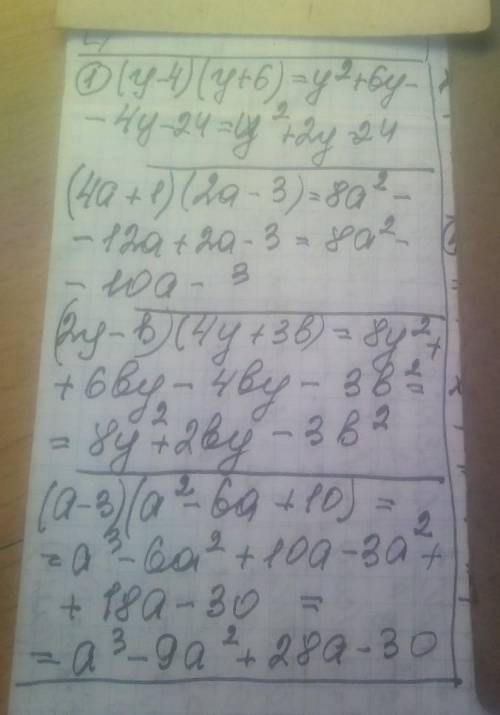 ① (y-4)(y+6)=y²+6y-
-4y-24=y²+2y-24
(4a+1)(2a-3)=8a²-
-12a+2a-3=8a²-
-10a-3
(2y-b)(4y+3b)=8y²+
+6by-4by-3b²=
=8y²+2by-3b²
(a-3)(a²-6a+10)=
=a³-6a²+10a-3a²+
+18a-30 =
=a³-9a²+28a-30